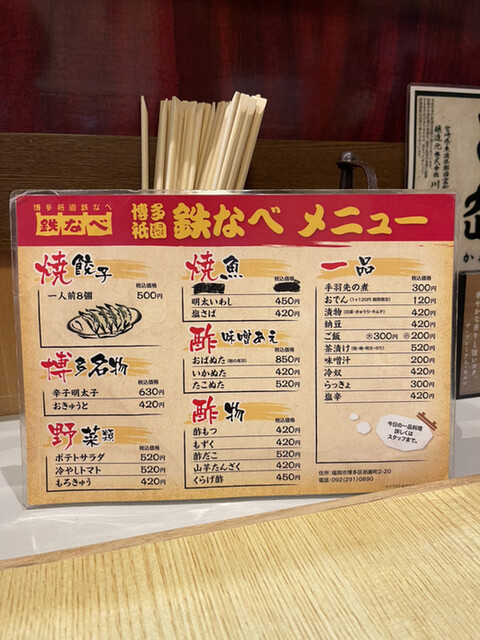 博多祇園鉄なべ
鉄なべ
博多
祇園
鉄なべ メニュー
焼餃子
税込価格
一人前8個 500円
博多名物
税込価格
辛子明太子 630円
おきゅうと 420円
野菜類
税込価格
ポテトサラダ 520円
冷やしトマト 520円
もろきゅう 420円
焼魚
税込価格
明太いわし 450円
塩さば 420円
酢味噌あえ
税込価格
おばぬた 850円
いかぬた 420円
たこぬた 520円
酢物
税込価格
酢もつ 420円
もずく 420円
酢だこ 520円
山芋たんざく 420円
くらげ酢 450円
一品
税込価格
手羽先の煮 300円
おでん(1ヶ120円 期間限定) 120円
漬物(白菜・きゅうり・キムチ) 420円
納豆 420円
ご飯 大300円 小200円
茶漬け(鮭・梅・明太・のり) 520円
味噌汁 200円
冷奴 420円
らっきょ 300円
塩辛 420円
今日の一品料理
詳しくは
スタッフまで。
住所:福岡市博多区祇園町2-20
電話:092(291)0890